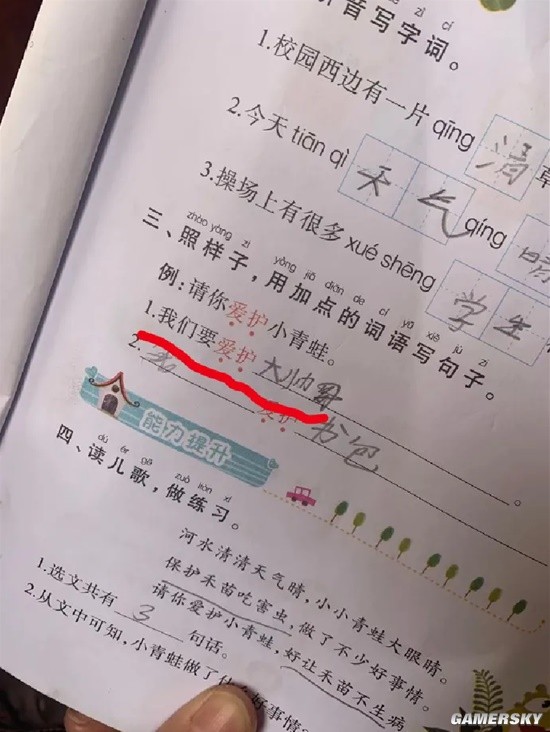 拼音写字词。
1.校园西边有一片 qīng 清草
2.今天 tiān qì 天气 qíng 晴
3.操场上有很多 xué shēng 学生
zhào yàng zi yòng jiā diǎn de cí yǔ xiě jù zi
三、照样子，用加点的词语写句子。
例：请你爱护小青蛙。
1.我们要爱护大帅哥
2. 爱护书包。
能力提升
dú ér gē zuò liàn xí
四、读儿歌，做练习。
河水清清天气晴，小小青蛙大眼睛。
保护禾苗吃害虫，做了不少好事情。
请你爱护小青蛙，好让禾苗不生病
1.选文共有 3 句话。
2.从文中可知，小青蛙做了什么好事情
GAMERSKY